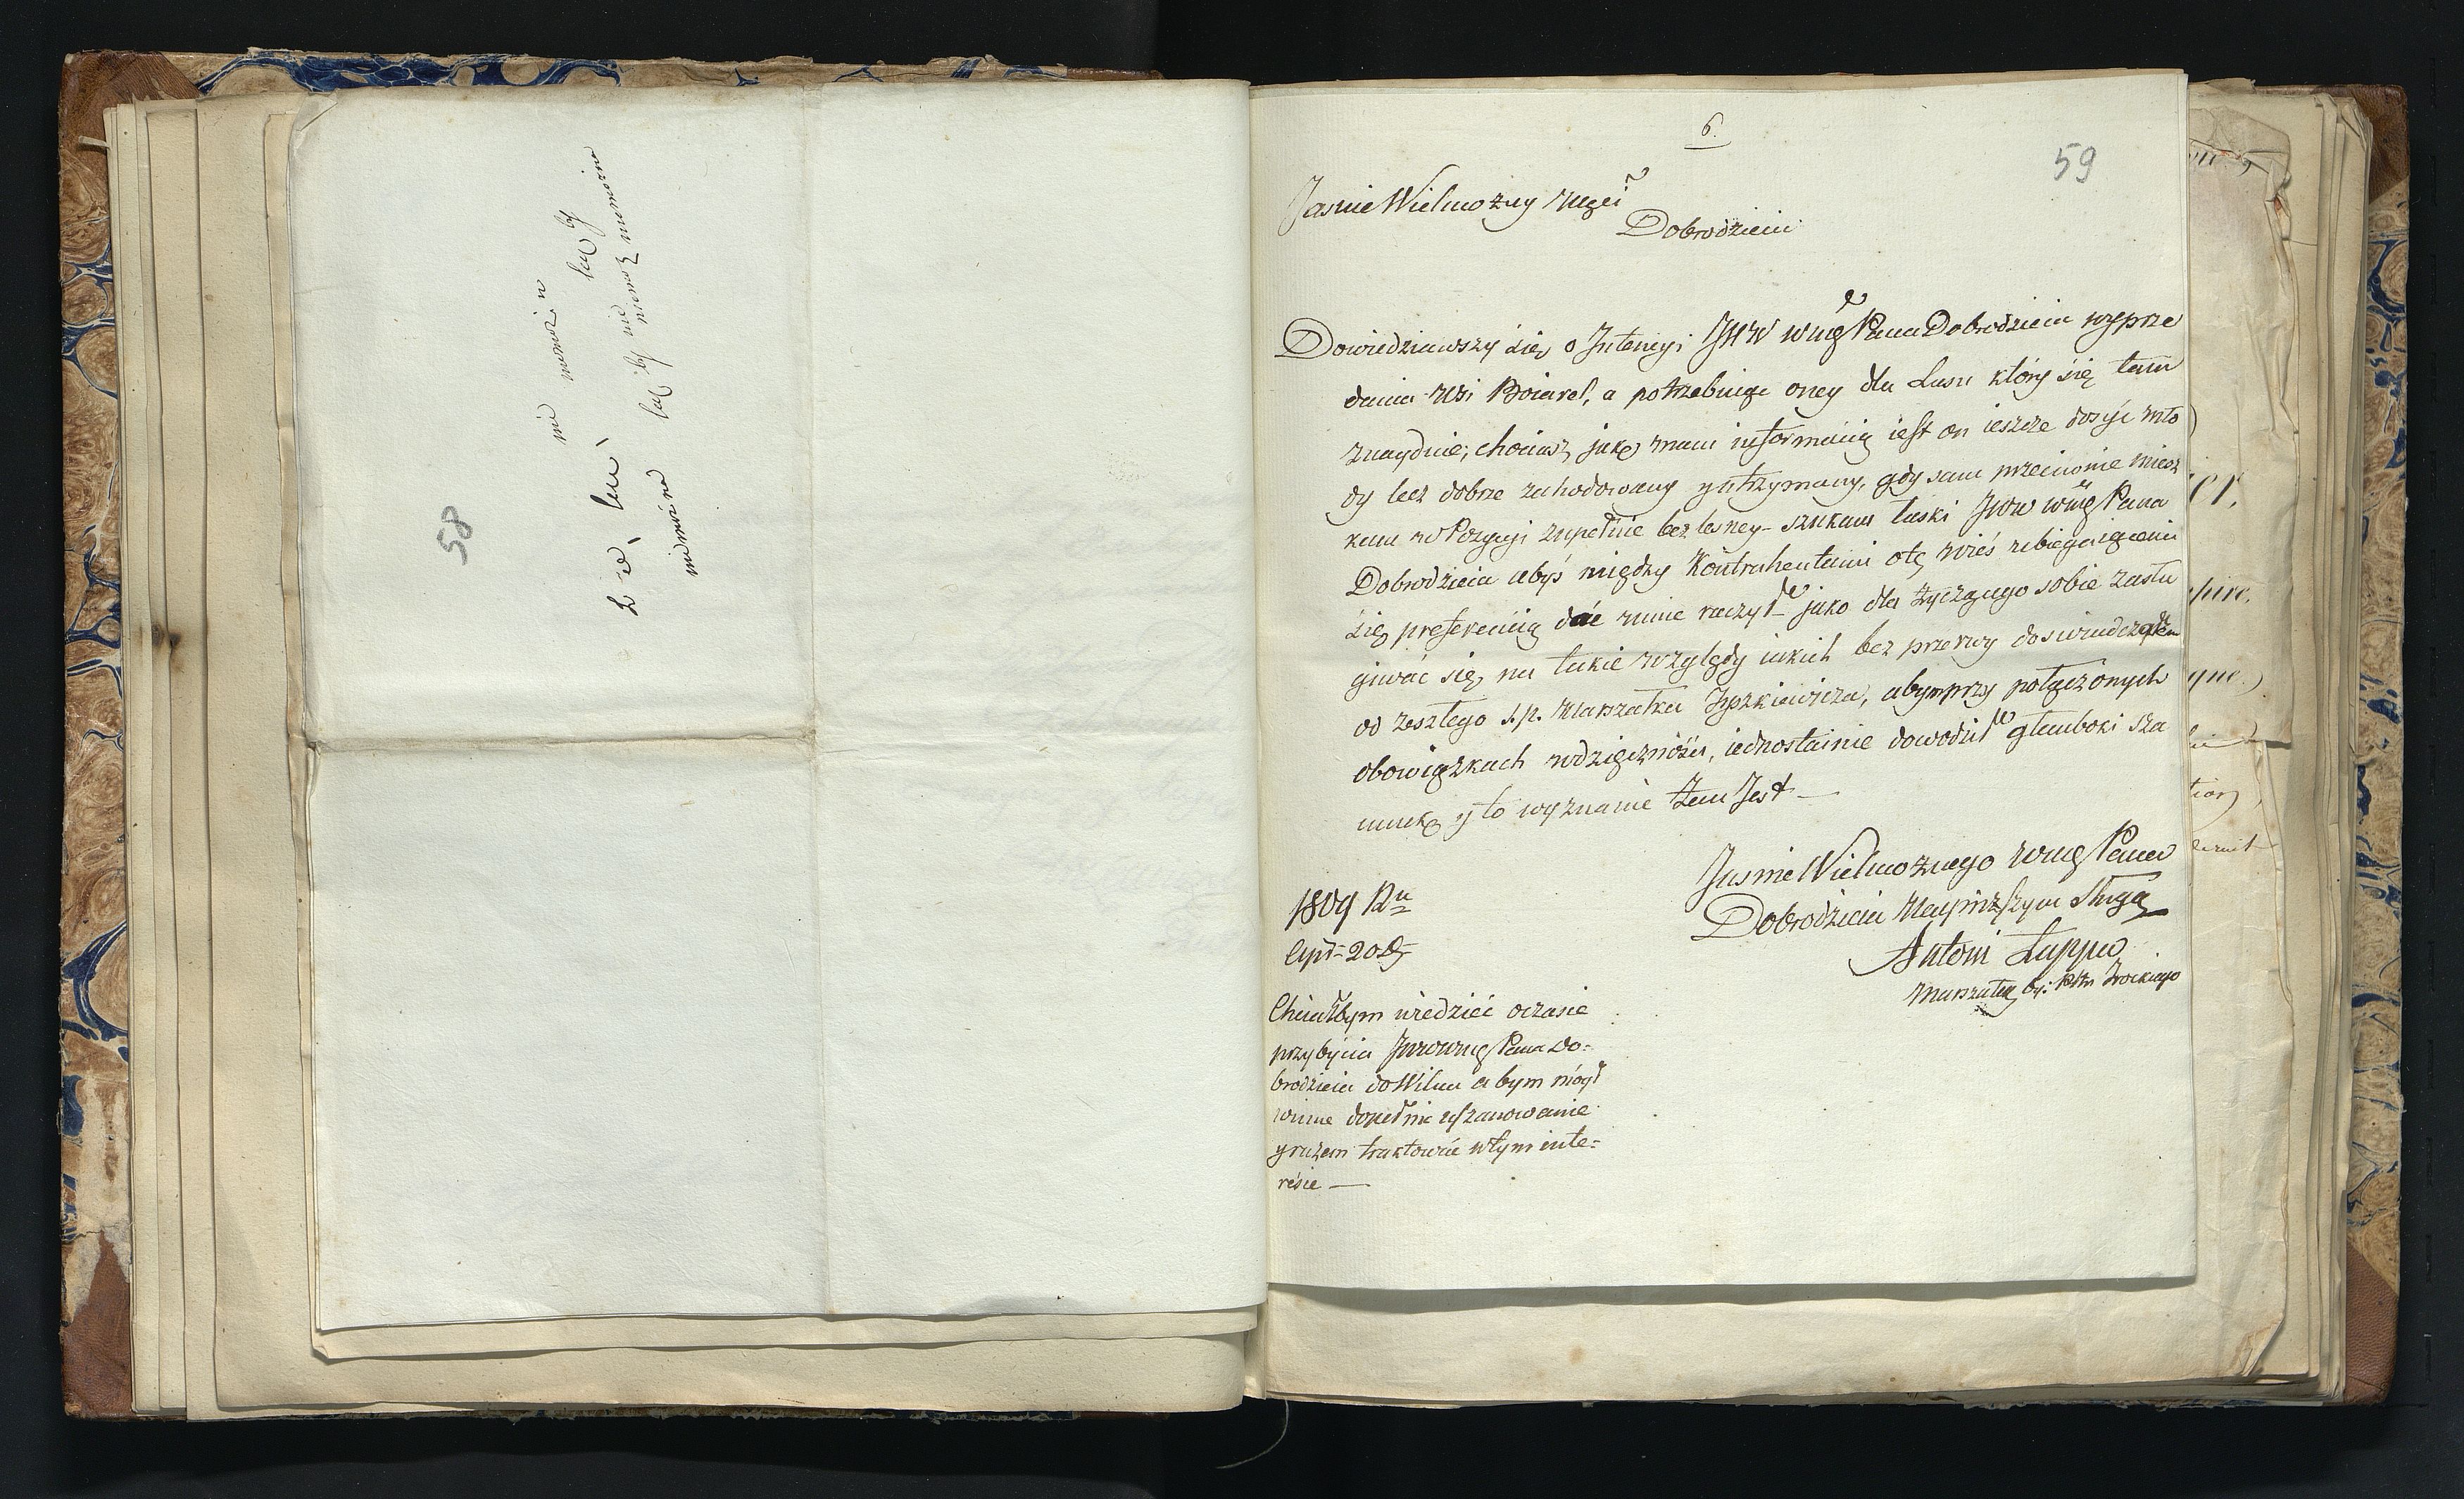 58
nie momoż n
laq by
nie niemoż momożna
laq by
niemożna
6.
59
Jasnie Wielmożny Mgci
Dobrodzieiu
Dowiedziawszy się o Intencyi JWW WMg Pana Dobrodzieia wyprze
dania Wsi Boiarel, a potrzebuiąc oney dla Lasu który się tam
znayduie, chociasz, jako mam informacią iest on ieszcze dosyć mło
dy lecz dobrze zachodowany y utrzymany, gdy sam przeciwnie miesz
kam w Pozycyi zupełnie bezlesney – szukam łaski JWW WMg Pana
Dobrodzieia abyś między Kontrahentami otę wieś ubiegaiącemi
się, preferencią dać mnie raczył – jako dla życzącego sobie zasłu
giwać się, na takie względy iakich bez przerwy doswiadczałem
od zeszłego s.p. Marszałka Tyszkiewicza, abym przy połączonych
obowiązkach wdzięcznósći, iednostainie dowodził głemboki sza
cunek y to wyznanie żem Jest –
Jasnie Wielmożnego WMg Pana
Dobrodzieia Nayniższym Sługą
Antoni Łappa
Marszałek by: Pttu Trockiego
1809 Ru
Apr = 20 D
Chciałbym wiedzieć oczasie
przybycia JWWWMg Pana Do=
brodzieia do Wilna a bym mógł
winne dopełnić uszanowanie
y razem traktować wtym inte=
resie —